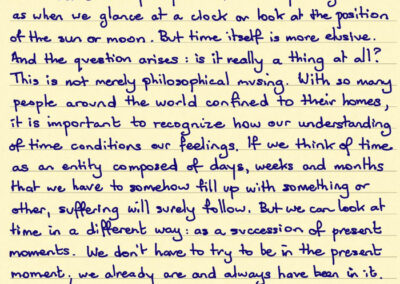 as when we glance at a clock or look at the position
of the sun or moon. But time itself is more elusive.
And the question arises: is it really a thing at all?
This is not merely philosophical musing. With so many
people around the world confined to their homes,
it is important to recognize how our understanding
of time conditions our feelings. If we think of time
as an entity composed of days, weeks and months
that we have to somehow fill up with something or
other, suffering will surely follow. But we can look at
time in a different way: as a succession of present
moments. We don't have to try to be in the present
moment; we already are and always have been in it.